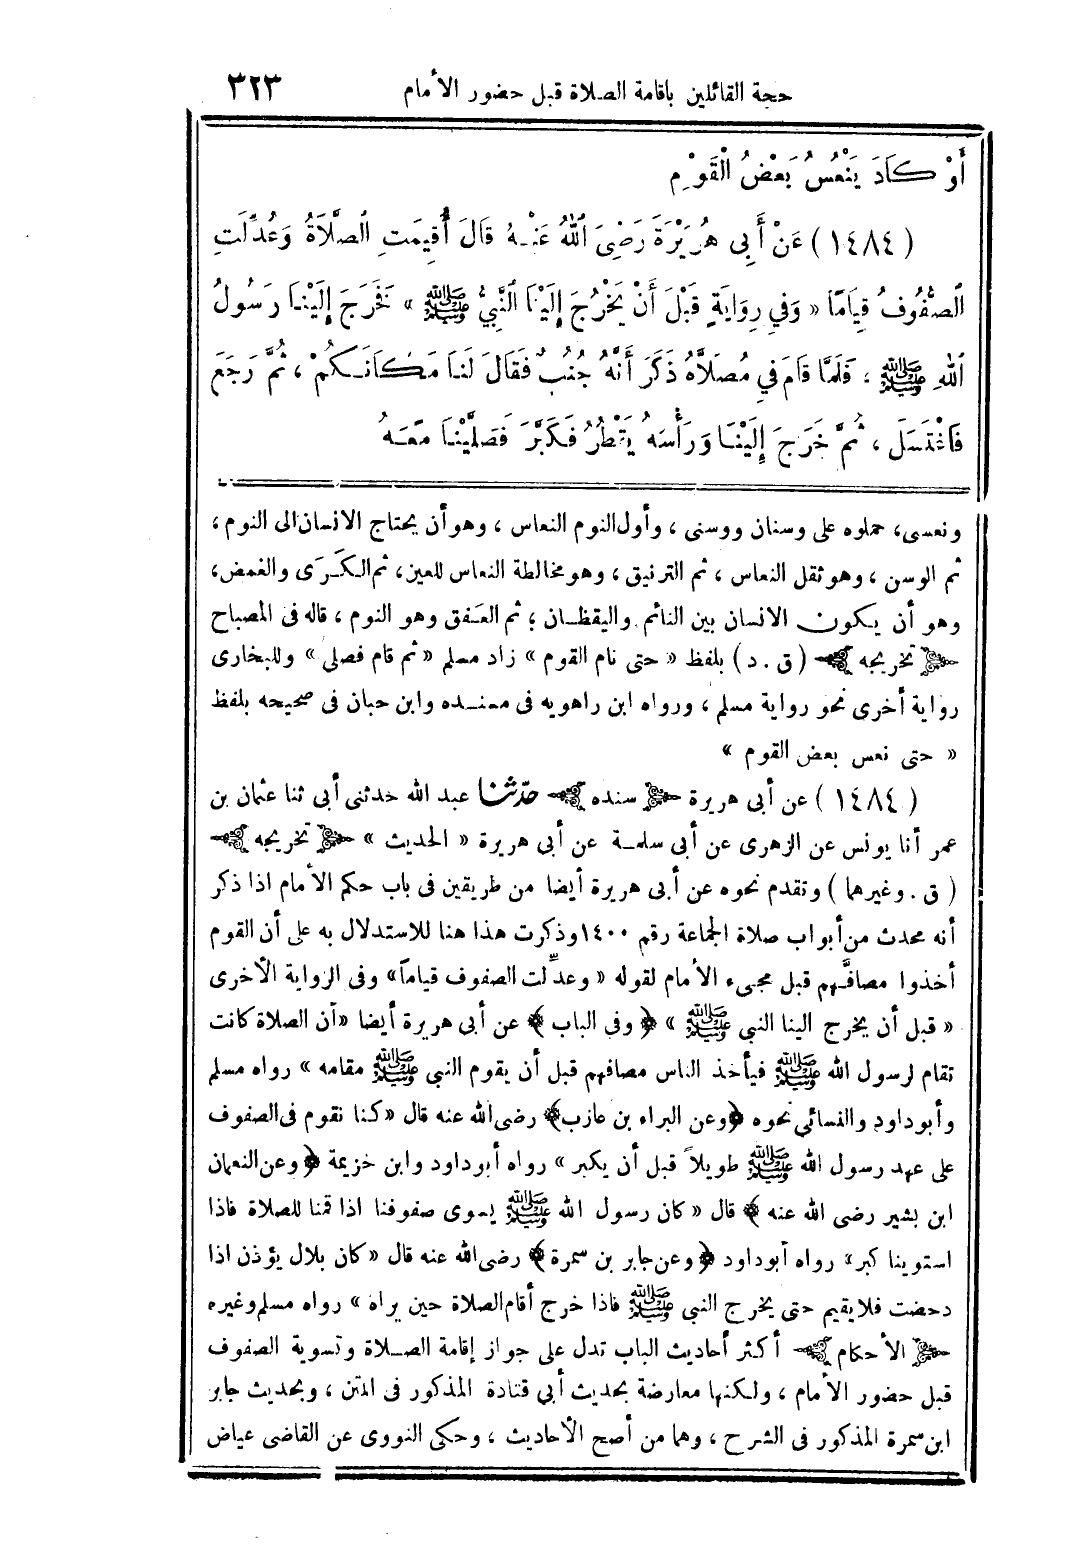 حجة القائلين باقامة الصلاة قبل حضور الأمام ٣٢٣
أَوْ كَادَ يَنْعُسُ بَعْضُ الْقَوْمِ
(١٤٨٤) عَنْ أَبِي هُرَيْرَةَ رَضِيَ اللهُ عَنْهُ قَالَ أُقِيمَتِ الصَّلَاةُ وَعُدِّلَتِ
الصُّفُوفُ قِيَامًا «وَفِي رِوَايَةٍ قَبْلَ أَنْ يَخْرُجَ إِلَيْنَا النَّبِيُّ ﷺ» فَخَرَجَ إِلَيْنَا رَسُولُ
اللهِ ﷺ ، فَلَمَّا قَامَ فِي مُصَلَّاهُ ذَكَرَ أَنَّهُ جُنُبٌ فَقَالَ لَنَا مَكَانَكُمْ ، ثُمَّ رَجَعَ
فَاغْتَسَلَ ، ثُمَّ خَرَجَ إِلَيْنَا وَرَأْسُهُ يَقْطُرُ فَكَبَّرَ فَصَلَّيْنَا مَعَهُ
ونعسى، حملوه على وسنان ووسنى ، وأول النوم النعاس ، وهو أن يحتاج الانسان الى النوم ،
ثم الوسن ، وهو ثقل النعاس ، ثم الترنيق ، وهو مخالطة النعاس للعين، ثم الكَرَى والغمض،
وهو أن يكون الانسان بين النائم واليقظان ؛ ثم العفق وهو النوم ، قاله في المصباح
تخريجه (ق . د) بلفظ « حتى نام القوم » زاد مسلم «ثم قام فصلى» وللبخارى
رواية أخرى نحو رواية مسلم ، ورواه ابن راهويه فى مسنده وابن حبان فى صحيحه بلفظ
« حتى نعس بعض القوم »
(١٤٨٤) عن أبى هريرة سنده حدّثنا عبد الله حدثنى أبى ثنا عثمان بن
عمر أنا يونس عن الزهرى عن أبى سلمة عن أبى هريرة « الحديث » تخريجه
( ق . وغيرهما ) وتقدم نحوه عن أبى هريرة أيضا من طريقين فى باب حكم الأمام اذا ذكر
أنه محدث من أبواب صلاة الجماعة رقم ١٤٠٠ وذكرت هذا هنا للاستدلال به على أن القوم
أخذوا مصافَّهم قبل مجىء الأمام لقوله « وعدِّلت الصفوف قياماً» وفى الرواية الأخرى
« قبل أن يخرج الينا النبي ﷺ » ﴿ وفى الباب ﴾ عن أبى هريرة أيضا «أن الصلاة كانت
تقام لرسول الله ﷺ فيأخذ الناس مصافهم قبل أن يقوم النبي ﷺ مقامه » رواه مسلم
وأبوداود والنسائى نحوه ﴿وعن البراء بن عازب﴾ رضى الله عنه قال «كنا نقوم فى الصفوف
على عهد رسول الله ﷺ طويلاً قبل أن يكبر » رواه أبوداود وابن خزيمة ﴿وعن النعمان
ابن بشير رضى الله عنه ﴾ قال «كان رسول الله ﷺ يسوى صفوفنا اذا قمنا للصلاة فاذا
استوينا كبر» رواه أبوداود ﴿وعن جابر بن سمرة﴾ رضى الله عنه قال «كان بلال يؤذن اذا
دحضت فلا يقيم حتى يخرج النبي ﷺ فاذا خرج أقام الصلاة حين يراه » رواه مسلم وغيره
الأحكام أكثر أحاديث الباب تدل على جواز إقامة الصلاة وتسوية الصفوف
قبل حضور الأمام ، ولكنها معارضة بحديث أبى قتادة المذكور فى المتن ، وبحديث جابر
ابن سمرة المذكور فى الشرح ، وهما من أصح الأحاديث ، وحكى النووى عن القاضى عياض